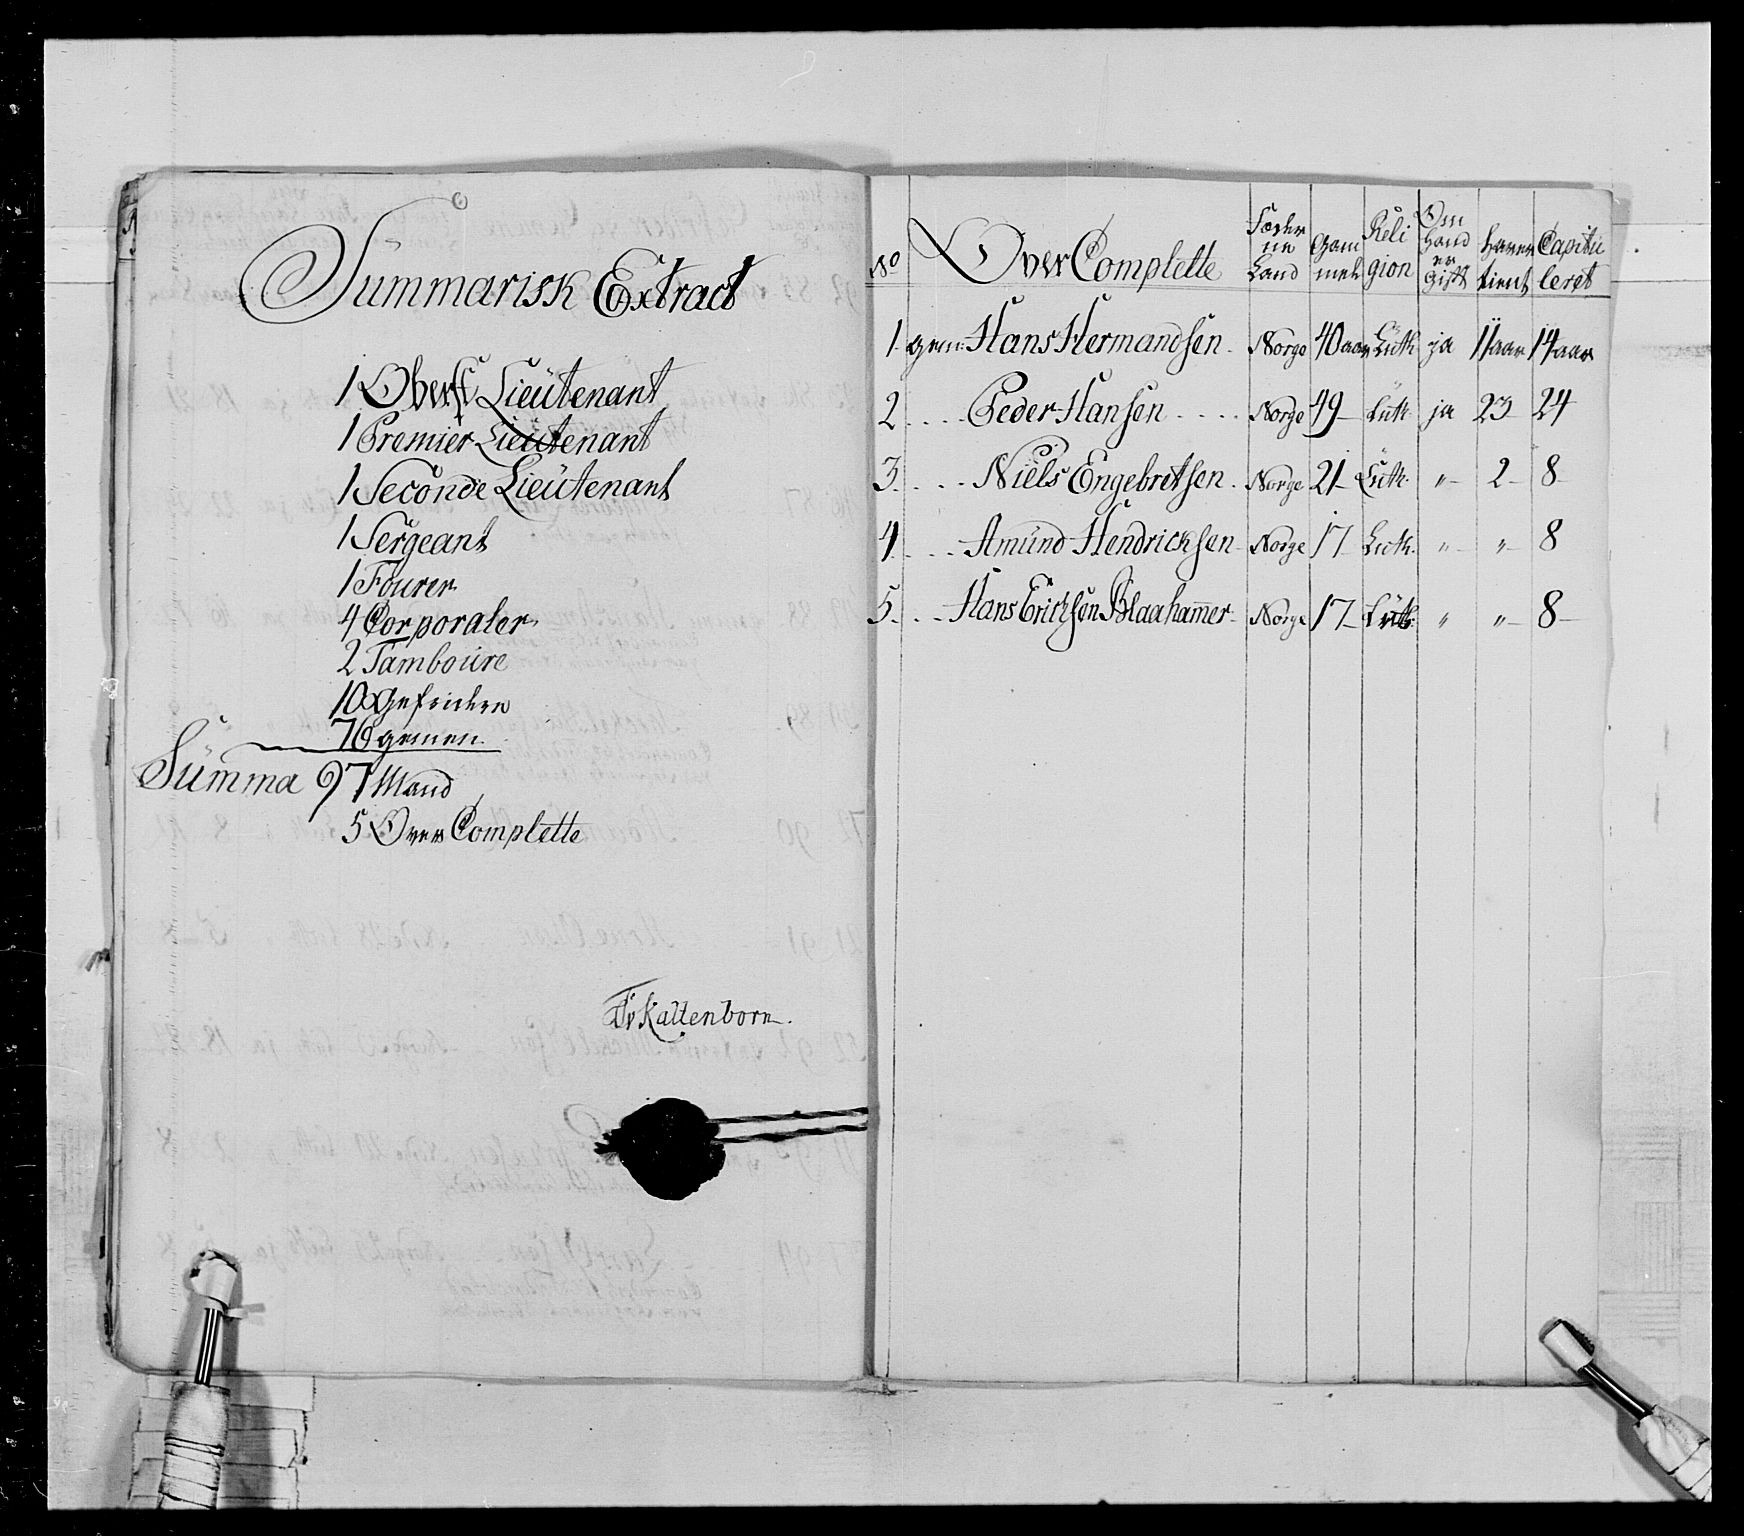 Summarisk Extract
1 Oberst Lieütenant
1 Premier Lieutenant
1 Seconde Lieütenant
1 Sergeant
1 Fourer
4 Corporaler
2 Tamboure
10 Gefridere
76 gemen
Summa 97 Mand
5 Over Complette
FvKaltenborn.
No Over Complette Föder ne Land Gam mel Reli gion Om hand er Gift haver tient Capitu leret
1 gem: Hans Hermandsen Norge 40 aar Lüth ja 11 aar 14 aar
2 Peder Hansen Norge 49 Lüth ja 23 24
3 Niels Engebretsen Norge 21 Lüth. " 2 8
4 Amund Hendricksen Norge 17 Luth. " " 8
5 Hans Erichsen Blaahamer Norge 17 Lüth " " 8